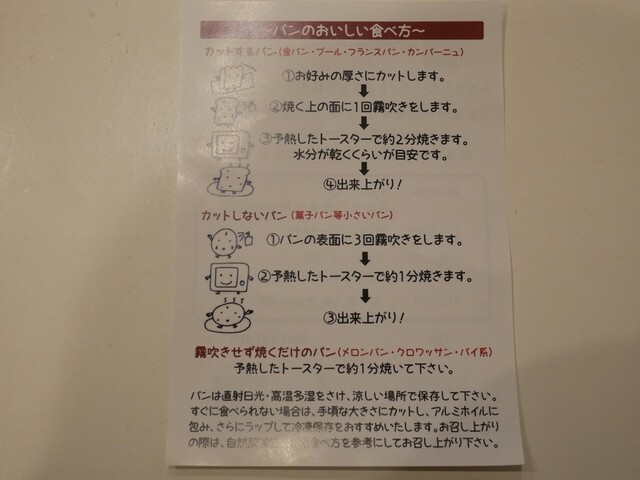 ～パンのおいしい食べ方～
カットするパン(食パン・ブール・フランスパン・カンパーニュ)
①お好みの厚さにカットします。
②焼く上の面に1回霧吹きをします。
③予熱したトースターで約2分焼きます。
水分が乾くくらいが目安です。
④出来上がり!
カットしないパン(菓子パン等小さいパン)
①パンの表面に3回霧吹きをします。
②予熱したトースターで約1分焼きます。
③出来上がり!
霧吹きせず焼くだけのパン(メロンパン・クロワッサン・パイ系)
予熱したトースターで約1分焼いて下さい。
パンは直射日光・高温多湿をさけ、涼しい場所で保存して下さい。
すぐに食べられない場合は、手頃な大きさにカットし、アルミホイルに
包み、さらにラップして冷凍保存をおすすめいたします。お召し上がり
の際は、自然 食べ方を参考にしてお召し上がり下さい。